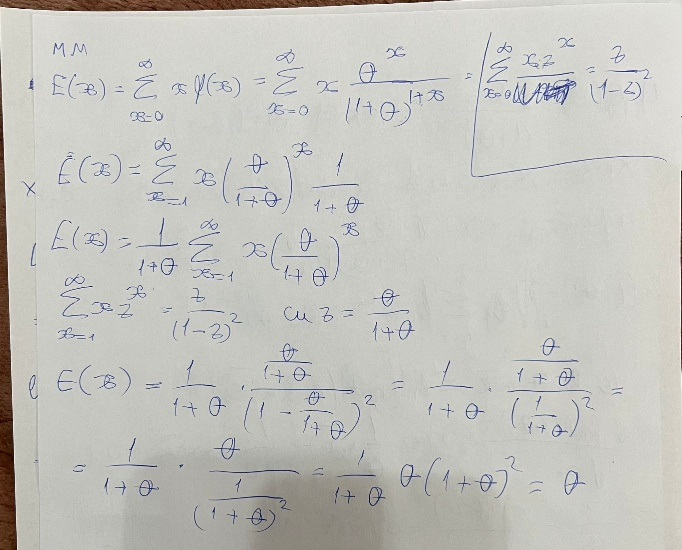 MM
E(x) = ∑_{x=0}^{∞} x f(x) = ∑_{x=0}^{∞} x θ^x / (1+θ)^{1+x} = | ∑_{x=0}^{∞} x z^x = z / (1-z)^2
E(x) = ∑_{x=1}^{∞} x (θ / (1+θ))^x 1 / (1+θ)
E(x) = 1 / (1+θ) ∑_{x=1}^{∞} x (θ / (1+θ))^x
∑_{x=1}^{∞} x z^x = z / (1-z)^2 cu z = θ / (1+θ)
E(x) = 1 / (1+θ) · (θ / (1+θ)) / (1 - θ / (1+θ))^2 = 1 / (1+θ) · (θ / (1+θ)) / (1 / (1+θ))^2 =
= 1 / (1+θ) · θ / (1 / (1+θ)^2) = 1 / (1+θ) θ(1+θ)^2 = θ